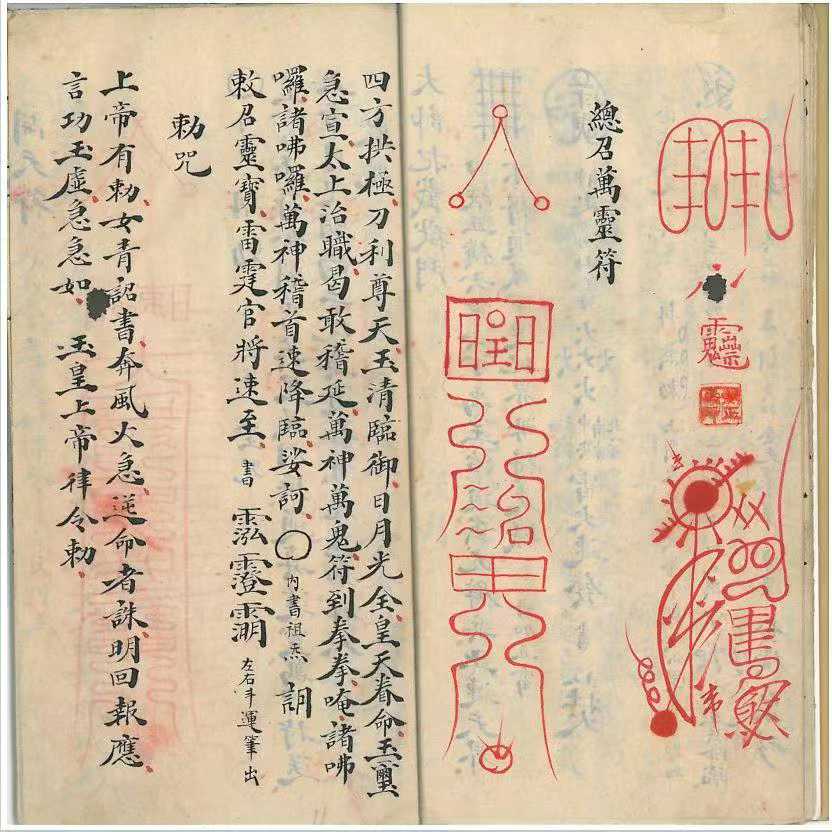 總召萬靈符
四方拱極刀利尊天玉清臨御日月光全皇天眷命玉璽
急宣太上治職曷敢稽延萬神萬鬼符到奉奉唵諸咈
囉諸咈囉萬神稽首速降臨娑訶○內書祖炁
敕召靈寶雷霆官將速至書 左右手運筆出
勅咒
上帝有勅女青詔書奔風火急逆命者誅明回報應
言功玉虛急急如 玉皇上帝律令勅